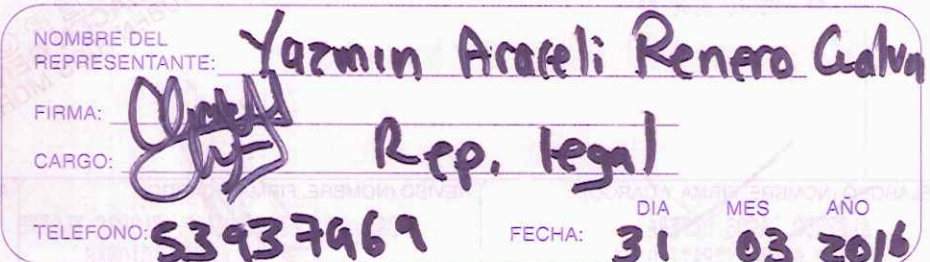 NOMBRE DEL
REPRESENTANTE: Yazmin Araceli Renero Galvn
FIRMA:
CARGO: Rep. legal
DIA MES AÑO
TELEFONO: 53937969 FECHA: 31 03 2016